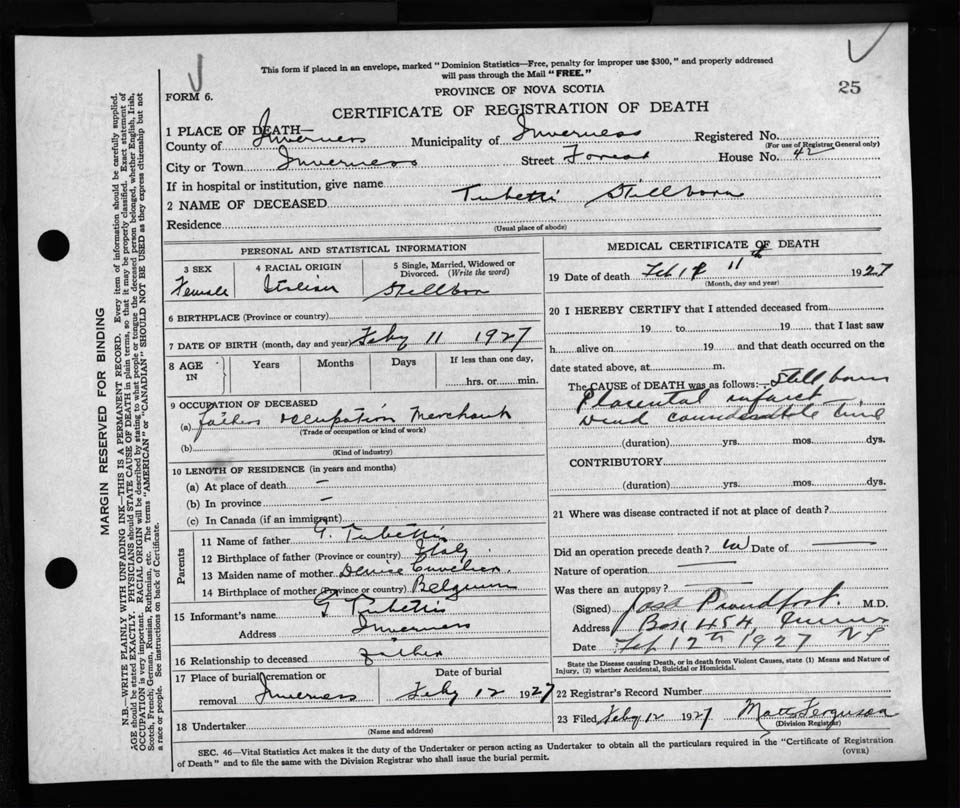 This form if placed in an envelope, marked "Dominion Statistics—Free, penalty for improper use $300," and properly addressed
will pass through the Mail "FREE."
FORM 6.
PROVINCE OF NOVA SCOTIA
25
CERTIFICATE OF REGISTRATION OF DEATH
1 PLACE OF DEATH—
County of Inverness Municipality of Inverness Registered No.
(For use of Registrar General only)
City or Town Inverness Street Forest House No. 42
If in hospital or institution, give name
2 NAME OF DECEASED Tubetti Stillborn
Residence
(Usual place of abode)
PERSONAL AND STATISTICAL INFORMATION
3 SEX 4 RACIAL ORIGIN 5 Single, Married, Widowed or Divorced. (Write the word)
Female Italian Stillborn
6 BIRTHPLACE (Province or country)
7 DATE OF BIRTH (month, day and year) Feby 11 1927
8 AGE IN Years Months Days If less than one day,
hrs. or min.
9 OCCUPATION OF DECEASED
(a) Fathers occupation Merchant
(Trade or occupation or kind of work)
(b)
(Kind of industry)
10 LENGTH OF RESIDENCE (in years and months)
(a) At place of death —
(b) In province —
(c) In Canada (if an immigrant)
Parents
11 Name of father G. Tubetti
12 Birthplace of father (Province or country) Italy
13 Maiden name of mother Denise Cuvelier
14 Birthplace of mother (Province or country) Belgium
15 Informant's name G Tubetti
Address Inverness
16 Relationship to deceased father
17 Place of burial, cremation or removal Inverness
Date of burial Feby 12 1927
18 Undertaker
(Name and address)
MEDICAL CERTIFICATE OF DEATH
19 Date of death Feb 11th 1927
(Month, day and year)
20 I HEREBY CERTIFY that I attended deceased from
19 to 19 that I last saw
h alive on 19 and that death occurred on the
date stated above, at m.
The CAUSE of DEATH was as follows:— Still born
Placental infarct
Dead considerable time
(duration) yrs. mos. dys.
CONTRIBUTORY
(duration) yrs. mos. dys.
21 Where was disease contracted if not at place of death?
Did an operation precede death? Date of
Nature of operation
Was there an autopsy?
(Signed) Proudfoot M.D.
Address Box 454,
Date Feb 12th 1927
State the Disease causing Death, or in death from Violent Causes, state (1) Means and Nature of
Injury, (2) whether Accidental, Suicidal or Homicidal.
22 Registrar's Record Number
23 Filed Feby 12 1927 Matt Ferguson
(Division Registrar)
SEC. 46—Vital Statistics Act makes it the duty of the Undertaker or person acting as Undertaker to obtain all the particulars required in the "Certificate of Registration
of Death" and to file the same with the Division Registrar who shall issue the burial permit.
(OVER)
MARGIN RESERVED FOR BINDING
N.B.—WRITE PLAINLY WITH UNFADING INK—THIS IS A PERMANENT RECORD. Every item of information should be carefully supplied.
AGE should be stated EXACTLY. PHYSICIANS should STATE CAUSE OF DEATH in plain terms, so that it may be properly classified. Exact statement of
OCCUPATION is very important. RACIAL ORIGIN will be described by stating to what people or tongue the deceased person belonged, whether English, Irish,
Scotch, French, German, Russian, Ruthenian, etc. The terms "AMERICAN" or "CANADIAN" SHOULD NOT BE USED as they express citizenship but not
a race or people. See instructions on back of Certificate.